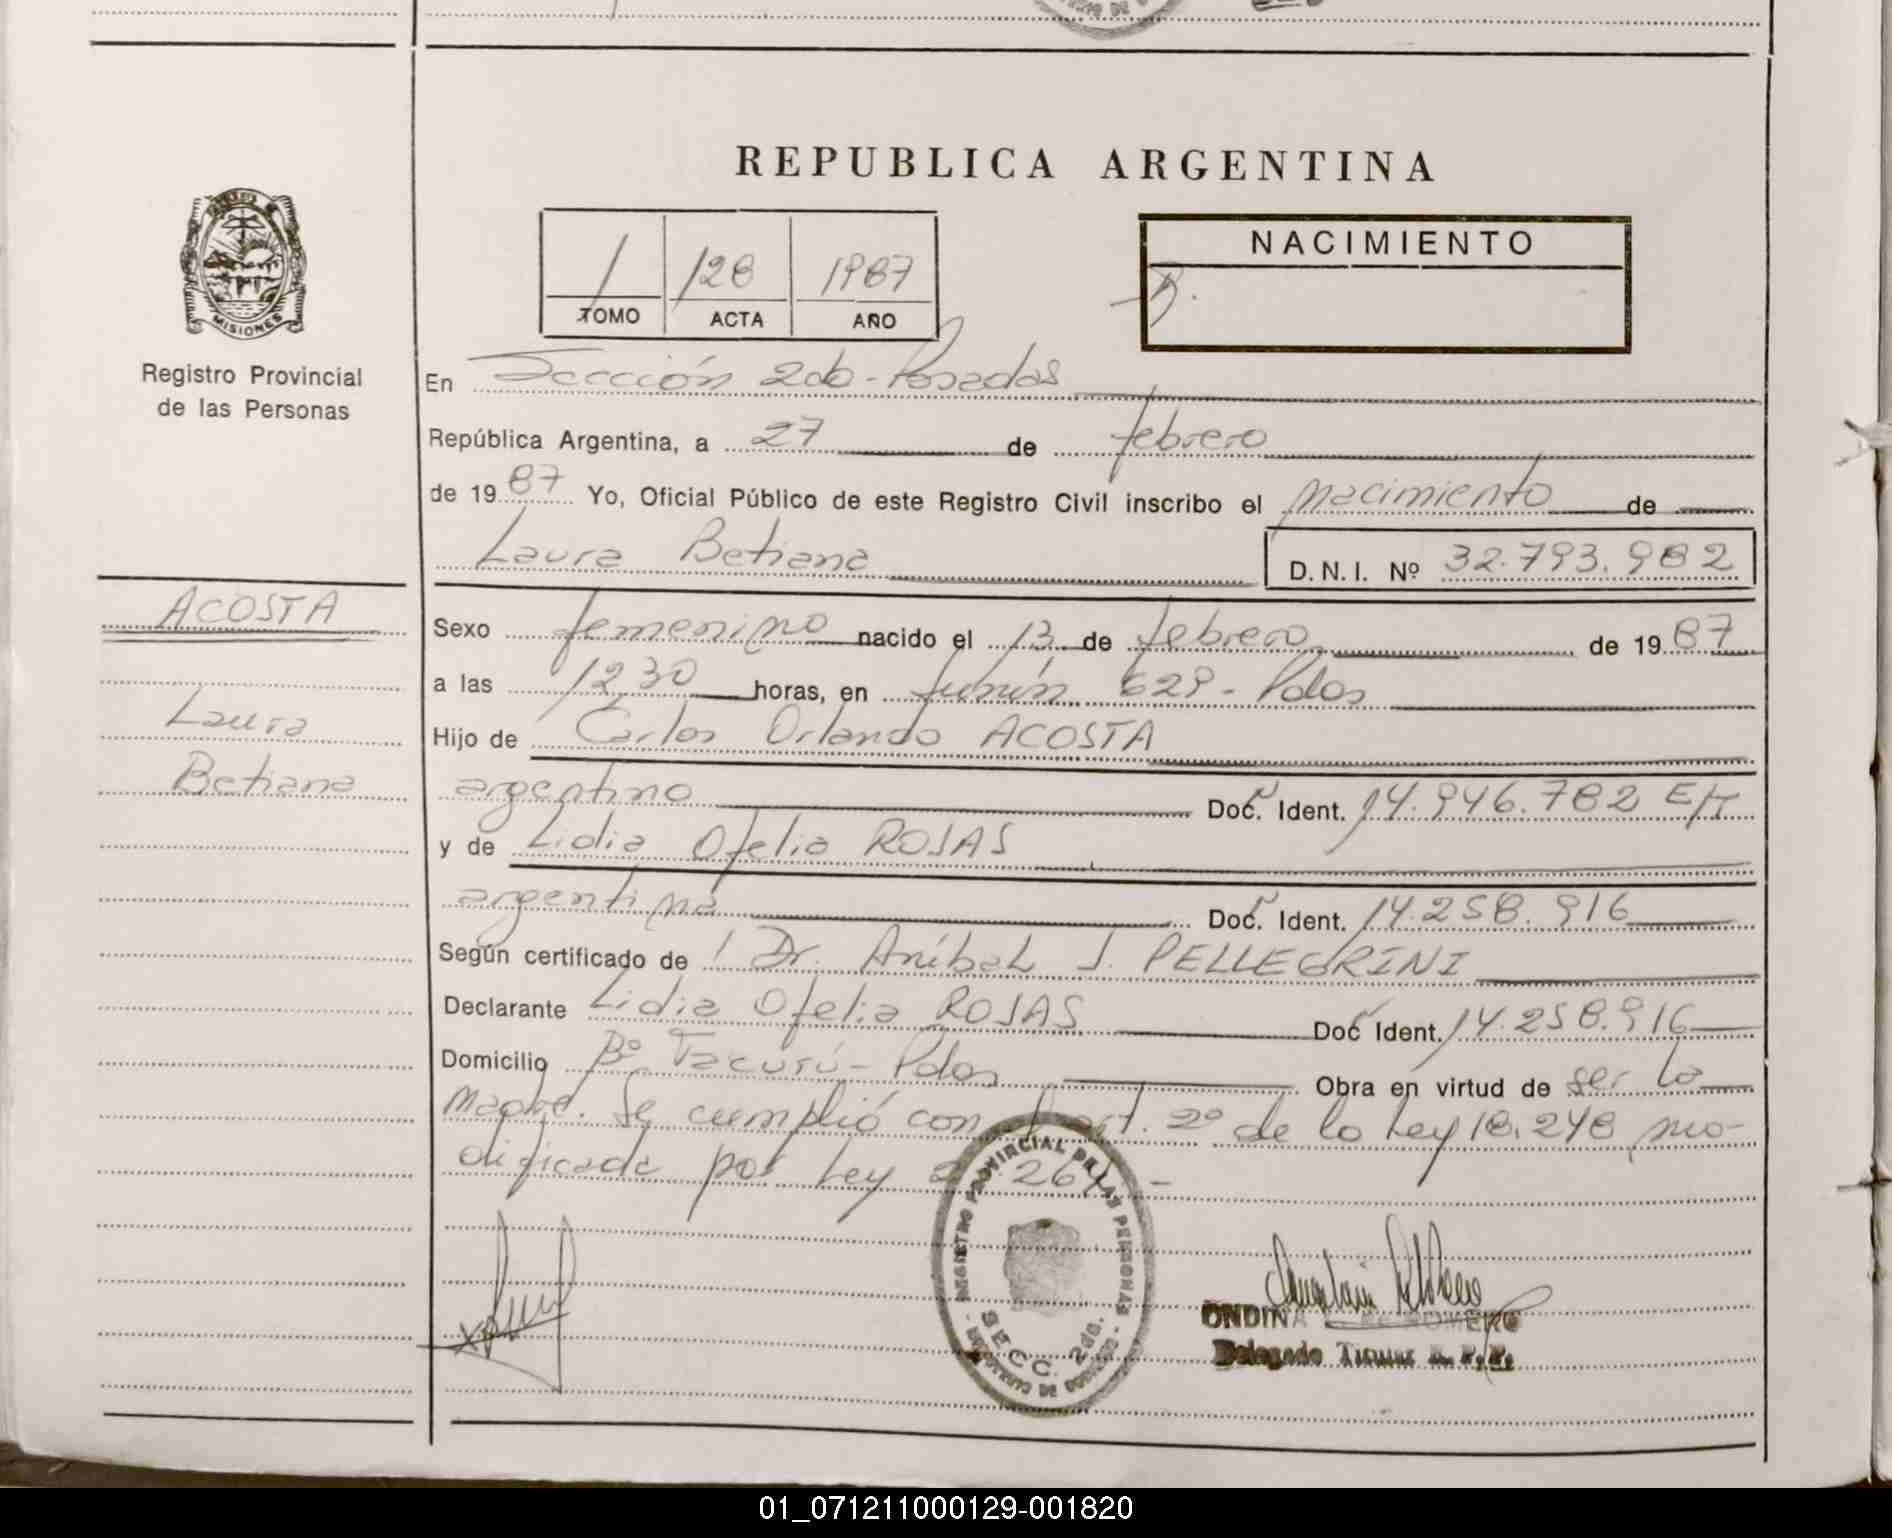 REPUBLICA ARGENTINA
MISIONES
Registro Provincial
de las Personas
1 128 1987
TOMO ACTA AÑO
NACIMIENTO
En Sección 2da - Posadas
República Argentina, a 27 de febrero
de 1987 Yo, Oficial Público de este Registro Civil inscribo el nacimiento de
Laura Betiana D. N. I. Nº 32.793.982
ACOSTA
Laura
Betiana
Sexo femenino nacido el 13 de febrero de 1987
a las 12,30 horas, en Junín 629 - Pdas
Hijo de Carlos Orlando ACOSTA
argentino Doc. Ident. 14.946.782
y de Lidia Ofelia ROJAS
argentina Doc. Ident. 14.258.916
Según certificado de Dr. Aníbal J. PELLEGRINI
Declarante Lidia Ofelia ROJAS Doc Ident. 14.258.916
Domicilio Bº Tacurú - Pdas Obra en virtud de ser la
madre. Se cumplió con art. 2º de la Ley 18.248 mo-
dificada por Ley
REGISTRO PROVINCIAL DE LAS PERSONAS
SECC. 2da.
ONDINA ROMERO
Delegado Titular R. P. P.
01_071211000129-001820